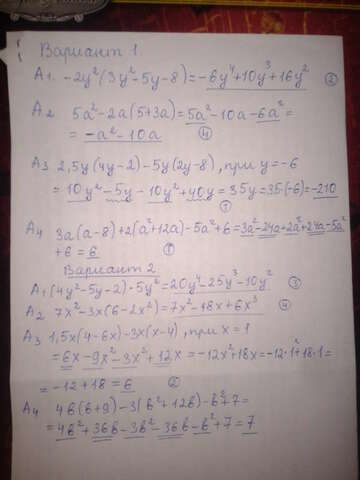 Вариант 1.
А1. -2y²(3y²-5y-8)=-6y⁴+10y³+16y² ②
А2 5a²-2a(5+3a)=5a²-10a-6a²=
= -a²-10a ④
А3 2,5y(4y-2)-5y(2y-8), при y=-6
= 10y²-5y-10y²+40y=35y=35·(-6)=-210
①
А4 3a(a-8)+2(a²+12a)-5a²+6=3a²-24a+2a²+24a-5a²
+6=6 ①
Вариант 2
А1 (4y²-5y-2)·5y²=20y⁴-25y³-10y² ③
А2 7x²-3x(6-2x²)=7x²-18x+6x³ ④
А3 1,5x(4-6x)-3x(x-4), при x=1
=6x-9x²-3x²+12x=-12x²+18x=-12·1²+18·1=
=-12+18=6 ②
А4 4b(b+9)-3(b²+12b)-b²+7=
=4b²+36b-3b²-36b-b²+7=7